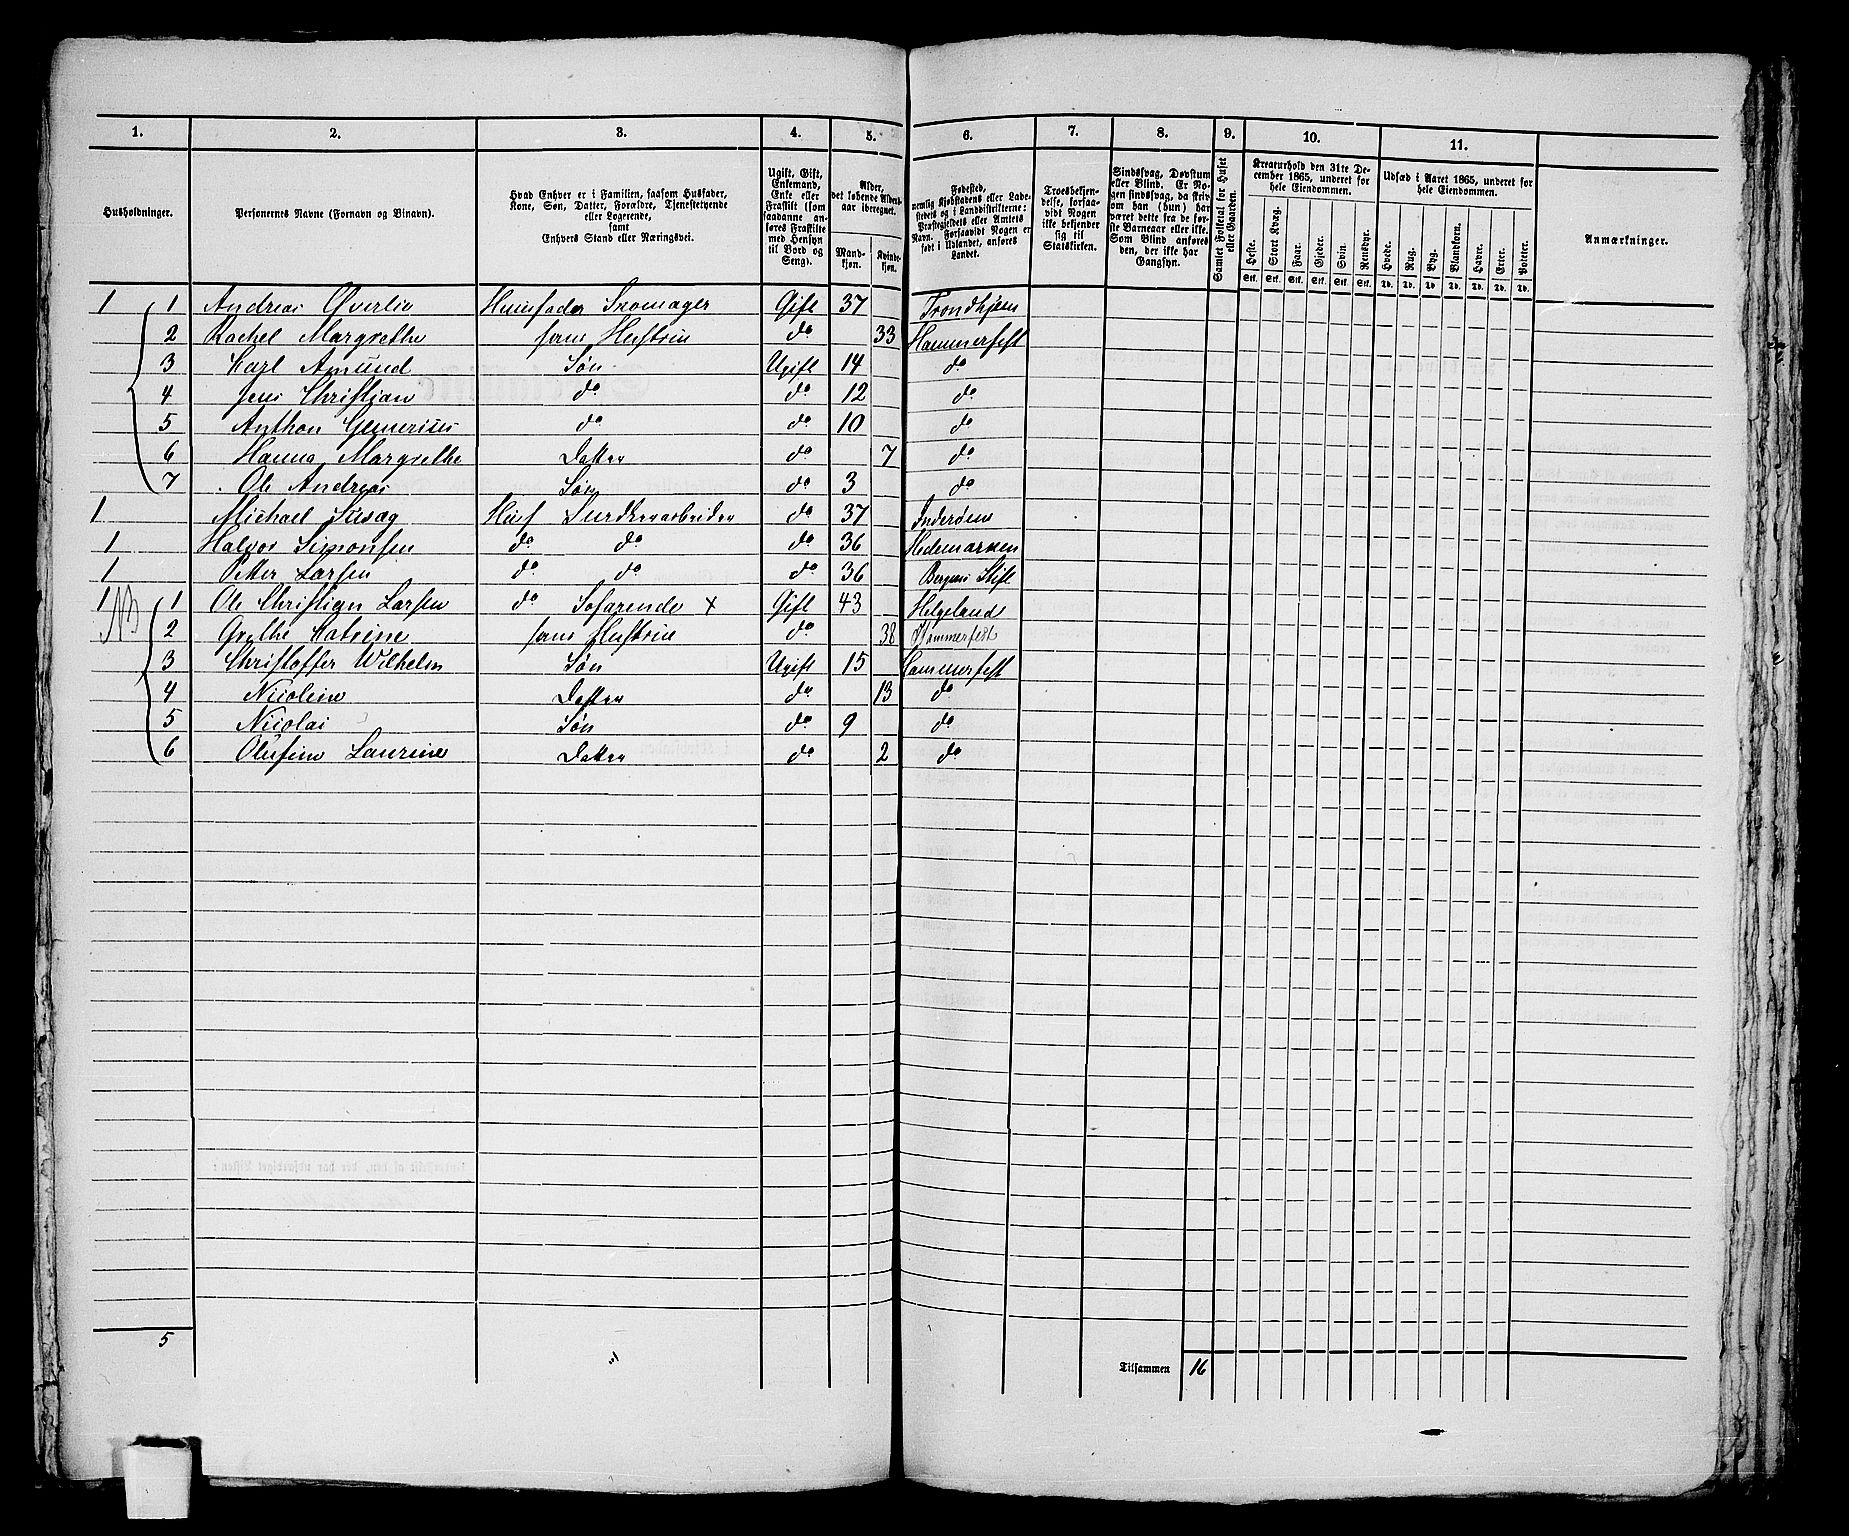 1. 2. 3. 4. 5. 6. 7. 8. 9. 10. 11.
Husholdninger.
Personernes Navne (Fornavn og Binavn).
Hvad Enhver er i Familien, saasom Husfader,
Kone, Søn, Datter, Forældre, Tjenestetyende
eller Logerende,
samt
Enhvers Stand eller Næringsvei.
Ugift, Gift,
Enkemand,
Enke eller
Fraskilt (som
saadanne anføres Fraskilte
med Hensyn
til Bord og
Seng).
Alder,
det løbende Alders-
aar iberegnet.
Mand-
kjøn.
Kvinde-
kjøn.
Fødested,
nemlig Kjøbstadens eller Lade-
stedets og i Landdistrikterne:
Præstegjeldets eller Amtets
Navn. Forsaavidt Nogen er
født i Udlandet, anføres
Landet.
Troesbekjen-
delse, forsaa-
vidt Nogen
ikke bekjender
sig til
Statskirken.
Sindssvag, Døvstum
eller Blind. Er No-
gen sindssvag, da skriv
om han (hun) har
været dette fra de før-
ste Barneaar eller ikke.
Som Blind anføres
den, der ikke har
Gangsyn.
Samlet Folketal for Huset
eller Gaarden.
Kreaturhold den 31te De-
cember 1865, underet for
hele Eiendommen.
Heste. Stort Kvæg. Faar. Gjeder. Svin. Rensdyr.
Stk. Stk. Stk. Stk. Stk. Stk.
Udsæd i Aaret 1865, underet for
hele Eiendommen.
Hvede. Rug. Byg. Blandkorn. Havre. Erter. Poteter.
Td. Td. Td. Td. Td. Td. Td.
Anmærkninger.
1 1 Andreas Øverlie Huusfader Skomager Gift 37 Trondhjem
2 Rachel Margrethe hans Hustrue do 33 Hammerfest
3 Karl Amund Søn Ugift 14 do
4 Jens Christian do do 12 do
5 Anthon do do 10 do
6 Hanna Margrethe Datter do 7 do
7 Ole Andreas Søn do 3 do
1 Michael Husf do 37 Inderøens
1 Halvor Simonsen do do do 36 Hedemarken
1 Petter Larsen do do do 36 Bergens Stift
1 NB 1 Ole Christian Larsen do Søfarende x Gift 43 Helgeland
2 Grethe Katrine hans Hustrue do 38 Hammerfest
3 Christoffer Wilhelm Søn Ugift 15 Hammerfest
4 Nicoline Datter do 13 do
5 Nicolai Søn do 9 do
6 Olufine Laurine Datter do 2 do
5
Tilsammen 16